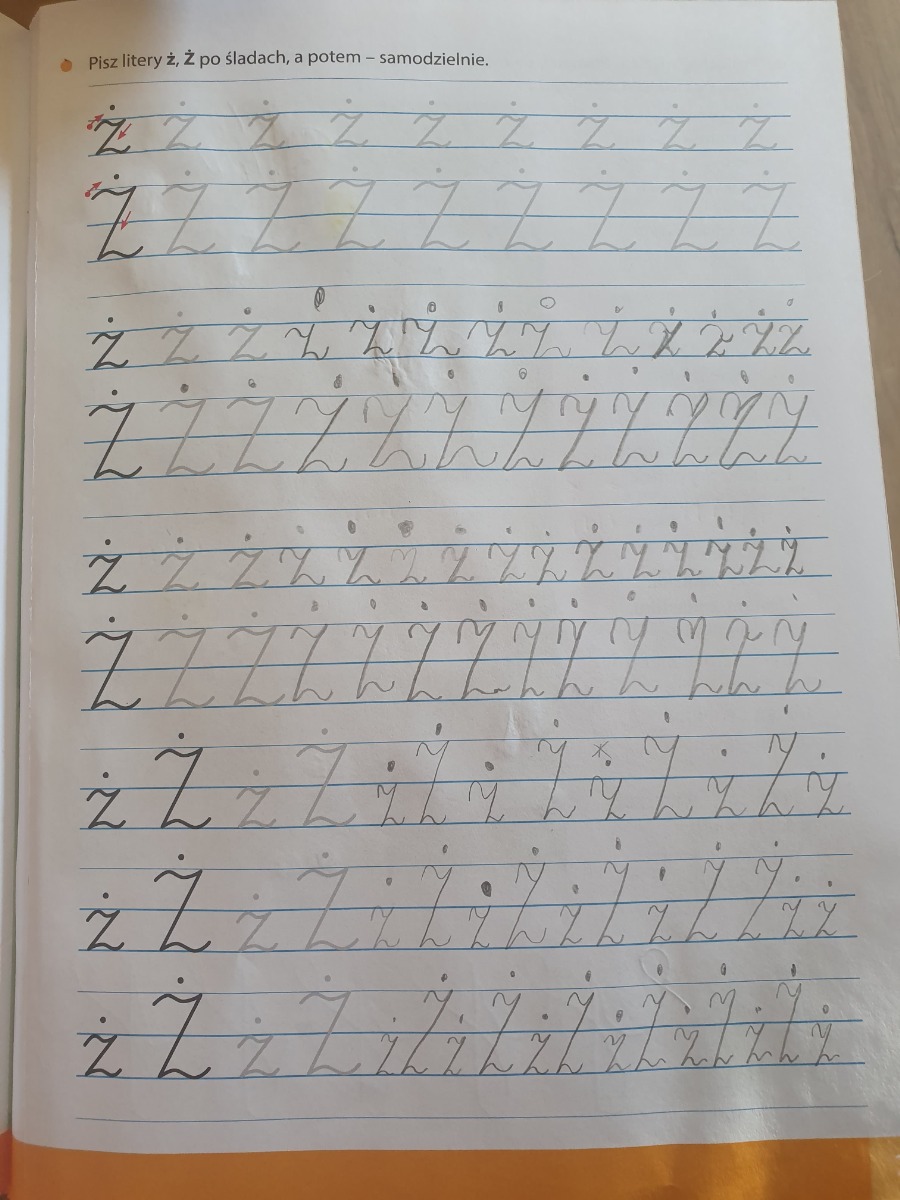 Pisz litery ż, Ż po śladach, a potem – samodzielnie.
ż ż ż ż ż ż ż ż ż
Ż Ż Ż Ż Ż Ż Ż Ż Ż
ż ż ż ż ż ż ż ż ż ż ż ż ż
Ż Ż Ż Ż Ż Ż Ż Ż Ż Ż Ż Ż
ż ż ż ż ż ż ż ż ż ż ż ż ż ż ż
Ż Ż Ż Ż Ż Ż Ż Ż Ż Ż Ż Ż Ż
ż Ż ż Ż ż Ż ż Ż ż Ż ż Ż ż
ż Ż ż Ż ż Ż ż Ż ż Ż ż Ż Ż ż ż
ż Ż ż Ż ż Ż ż Ż ż Ż ż Ż ż Ż ż Ż ż